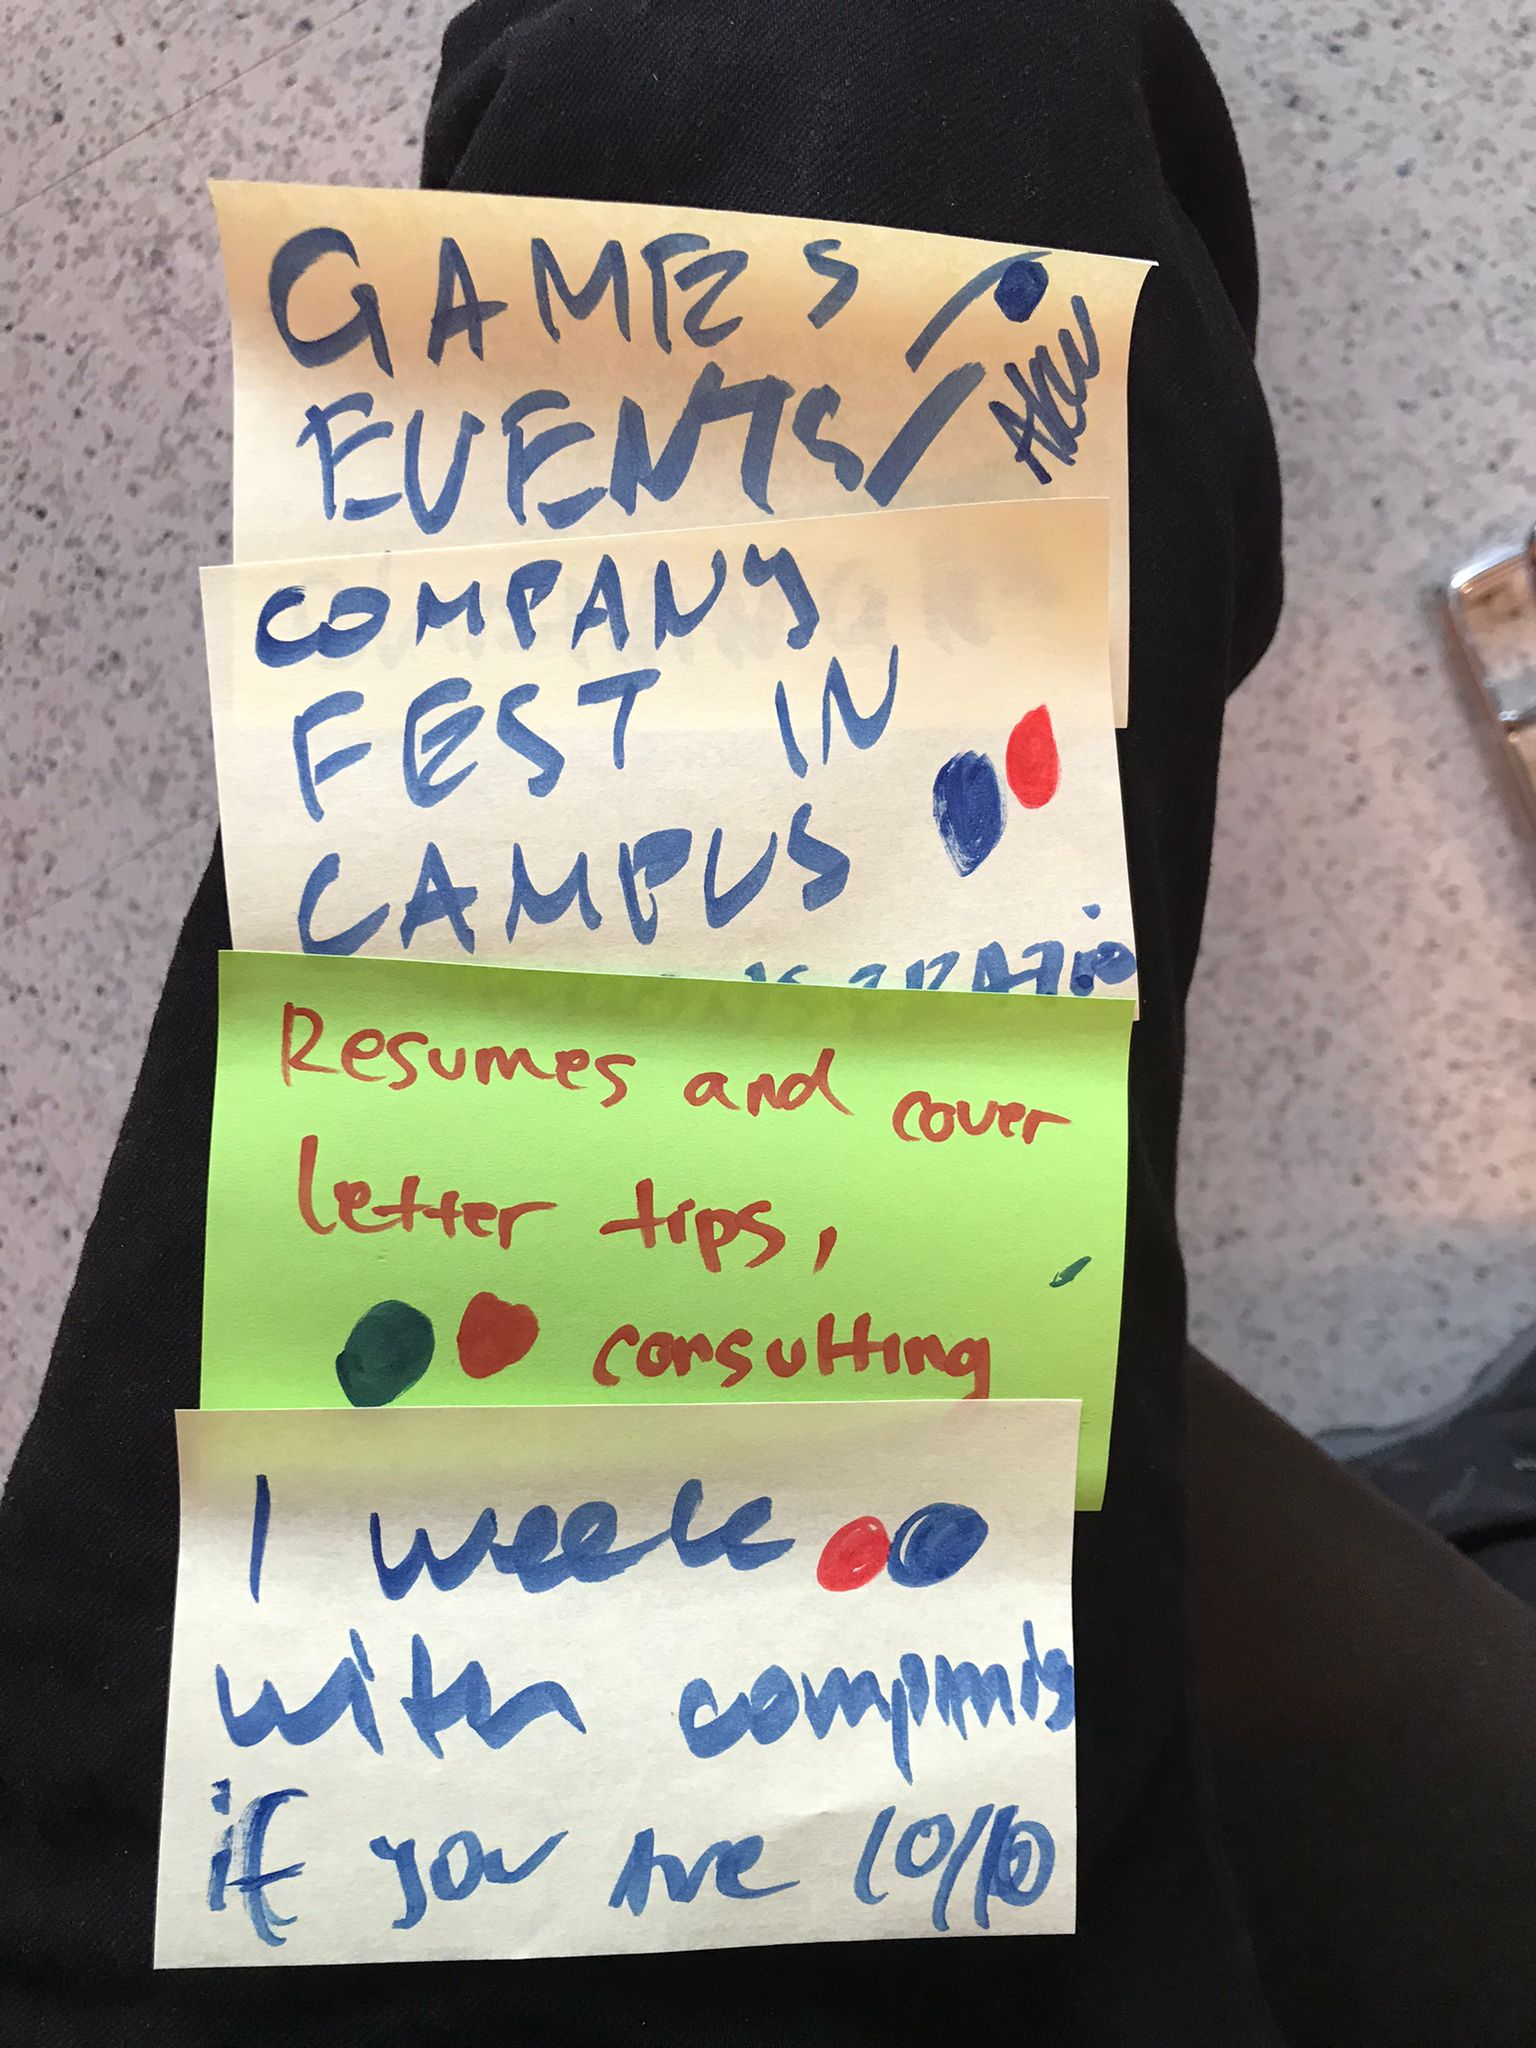 GAMES
EVENTS
COMPANY
FEST IN
CAMPUS
Resumes and cover
letter tips,
consulting
1 week
with
if you are 10/10